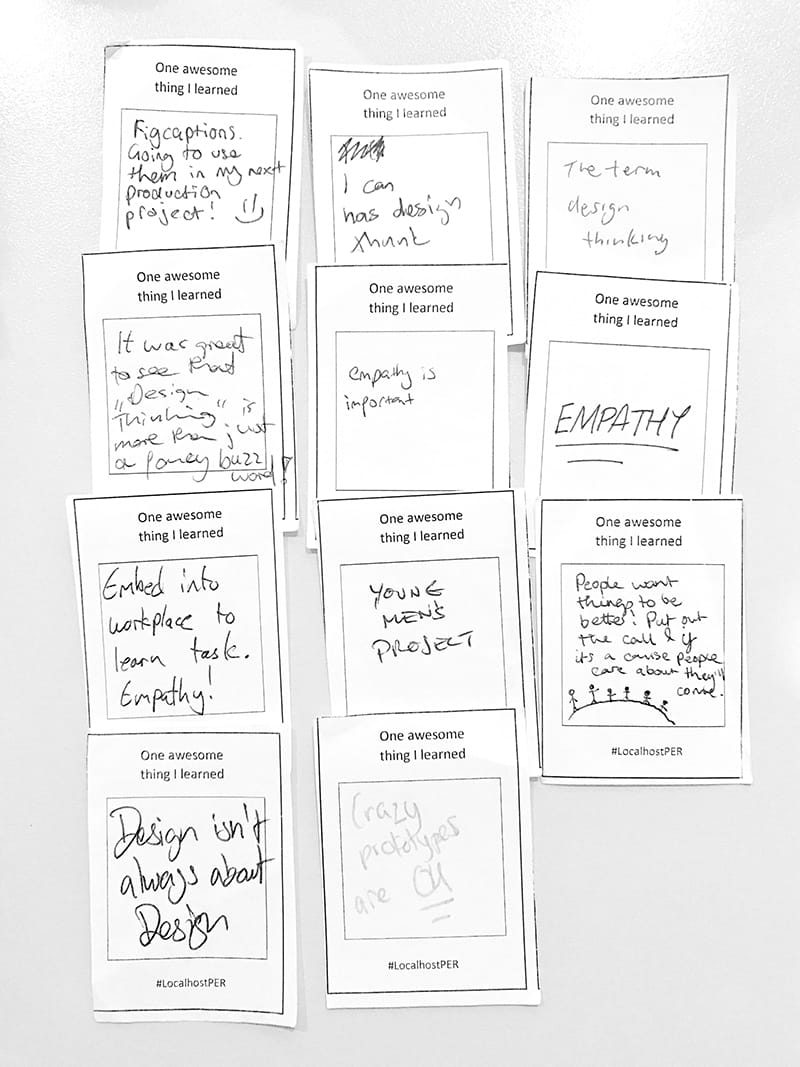 One awesome
thing I learned
Figcaptions.
Going to use
them in my next
production
project!
One awesome
thing I learned
I can
has design
One awesome
thing I learned
The term
design
thinking
One awesome
thing I learned
It was great
to see that
"Design
Thinking" is
more than just
a fancy buzz
word!
One awesome
thing I learned
empathy is
important
One awesome
thing I learned
EMPATHY
One awesome
thing I learned
Embed into
workplace to
learn task.
Empathy!
One awesome
thing I learned
YOUNG
MEN'S
PROJECT
One awesome
thing I learned
People want
things to be
better! Put out
the call & if
it's a cause people
care about they'll
come.
#LocalhostPER
One awesome
thing I learned
Design isn't
always about
Design
#LocalhostPER
One awesome
thing I learned
Crazy
prototypes
are OK
#LocalhostPER